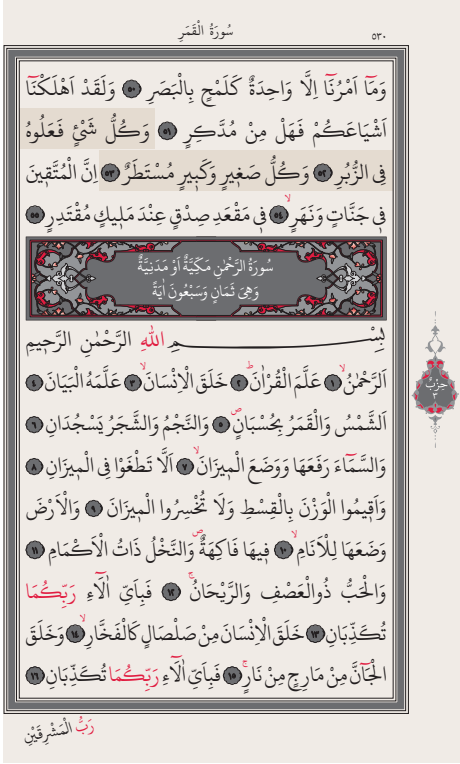 سُورَةُ الْقَمَرِ
٥٣٠
وَمَٓا اَمْرُنَٓا اِلَّا وَاحِدَةٌ كَلَمْحٍ بِالْبَصَرِ ٥٠ وَلَقَدْ اَهْلَكْنَٓا
اَشْيَاعَكُمْ فَهَلْ مِنْ مُدَّكِرٍ ٥١ وَكُلُّ شَيْءٍ فَعَلُوهُ
فِي الزُّبُرِ ٥٢ وَكُلُّ صَغ۪يرٍ وَكَب۪يرٍ مُسْتَطَرٌ ٥٣ اِنَّ الْمُتَّق۪ينَ
ف۪ي جَنَّاتٍ وَنَهَرٍۙ ٥٤ ف۪ي مَقْعَدِ صِدْقٍ عِنْدَ مَل۪يكٍ مُقْتَدِرٍ ٥٥
سُورَةُ الرَّحْمٰنِ مَكِّيَّةٌ اَوْ مَدَنِيَّةٌ
وَهِيَ ثَمَانٍ وَسَبْعُونَ اٰيَةً
بِسْمِ اللّٰهِ الرَّحْمٰنِ الرَّح۪يمِ
اَلرَّحْمٰنُۙ ١ عَلَّمَ الْقُرْاٰنَۜ ٢ خَلَقَ الْاِنْسَانَۙ ٣ عَلَّمَهُ الْبَيَانَ ٤
اَلشَّمْسُ وَالْقَمَرُ بِحُسْبَانٍۖ ٥ وَالنَّجْمُ وَالشَّجَرُ يَسْجُدَانِ ٦
وَالسَّمَٓاءَ رَفَعَهَا وَوَضَعَ الْم۪يزَانَۙ ٧ اَلَّا تَطْغَوْا فِي الْم۪يزَانِ ٨
وَاَق۪يمُوا الْوَزْنَ بِالْقِسْطِ وَلَا تُخْسِرُوا الْم۪يزَانَ ٩ وَالْاَرْضَ
وَضَعَهَا لِلْاَنَامِۙ ١٠ ف۪يهَا فَاكِهَةٌۖ وَالنَّخْلُ ذَاتُ الْاَكْمَامِ ١١
وَالْحَبُّ ذُو الْعَصْفِ وَالرَّيْحَانُۚ ١٢ فَبِاَيِّ اٰلَٓاءِ رَبِّكُمَا
تُكَذِّبَانِ ١٣ خَلَقَ الْاِنْسَانَ مِنْ صَلْصَالٍ كَالْفَخَّارِۙ ١٤ وَخَلَقَ
الْجَٓانَّ مِنْ مَارِجٍ مِنْ نَارٍۚ ١٥ فَبِاَيِّ اٰلَٓاءِ رَبِّكُمَا تُكَذِّبَانِ ١٦
حِزْبُ
٣
رَبُّ الْمَشْرِقَيْنِ